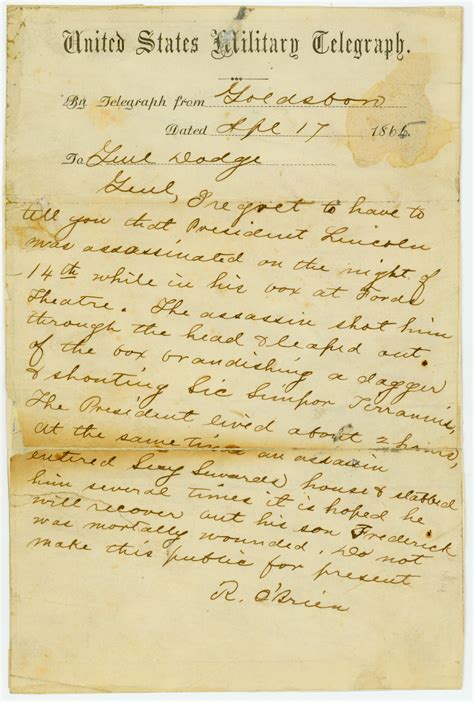 United States Military Telegraph.
By Telegraph from Goldsboro
Dated Apl 17 1865
To Genl Dodge
Genl, I regret to have to
tell you that President Lincoln
was assassinated on the night of
14th while in his box at Fords
Theatre. The assassin shot him
through the head & leaped out
of the box brandishing a dagger
& shouting Sic Simpor Tirannis,
The President lived about 2 hours,
at the same time an assassin
entered Secy Sewards house & stabbed
him several times it is hoped he
will recover but his son Frederick
was mortally wounded. Do not
make this public for present
R. O'Brien